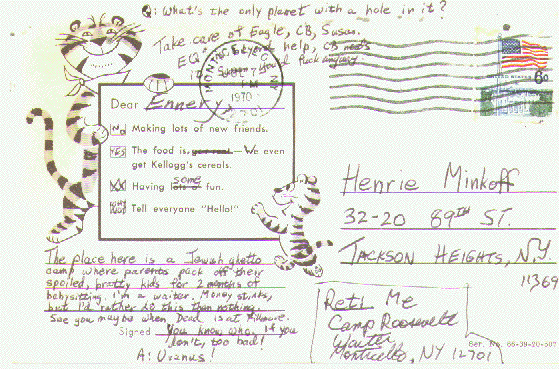 Q: What's the only planet with a hole in it?
Take care of Eagle, CB, Susan.
EQ* beyond help, CB needs
it
1970
6¢
Dear Ennery,
No Making lots of new friends.
YES The food is, gur-reat - We even
get Kellogg's cereals.
XX Having lots of some fun.
WHY NOT Tell everyone "Hello!"
The place here is a Jewish ghetto
camp where parents pack off their
spoiled, pretty kids for 2 months of
babysitting. I'm a waiter. Money stinks,
but I'd rather do this than nothing.
See you maybe when Dead is at Fillmore.
Signed You know who. If you
don't, too bad!
A: Uranus!
Henrie Minkoff
32-20 89TH ST.
JACKSON HEIGHTS, N.Y.
11369
Ret: Me
Camp Roosevelt
Waiter
Monticello, NY 12701
Ser. No. 66-39-20-507